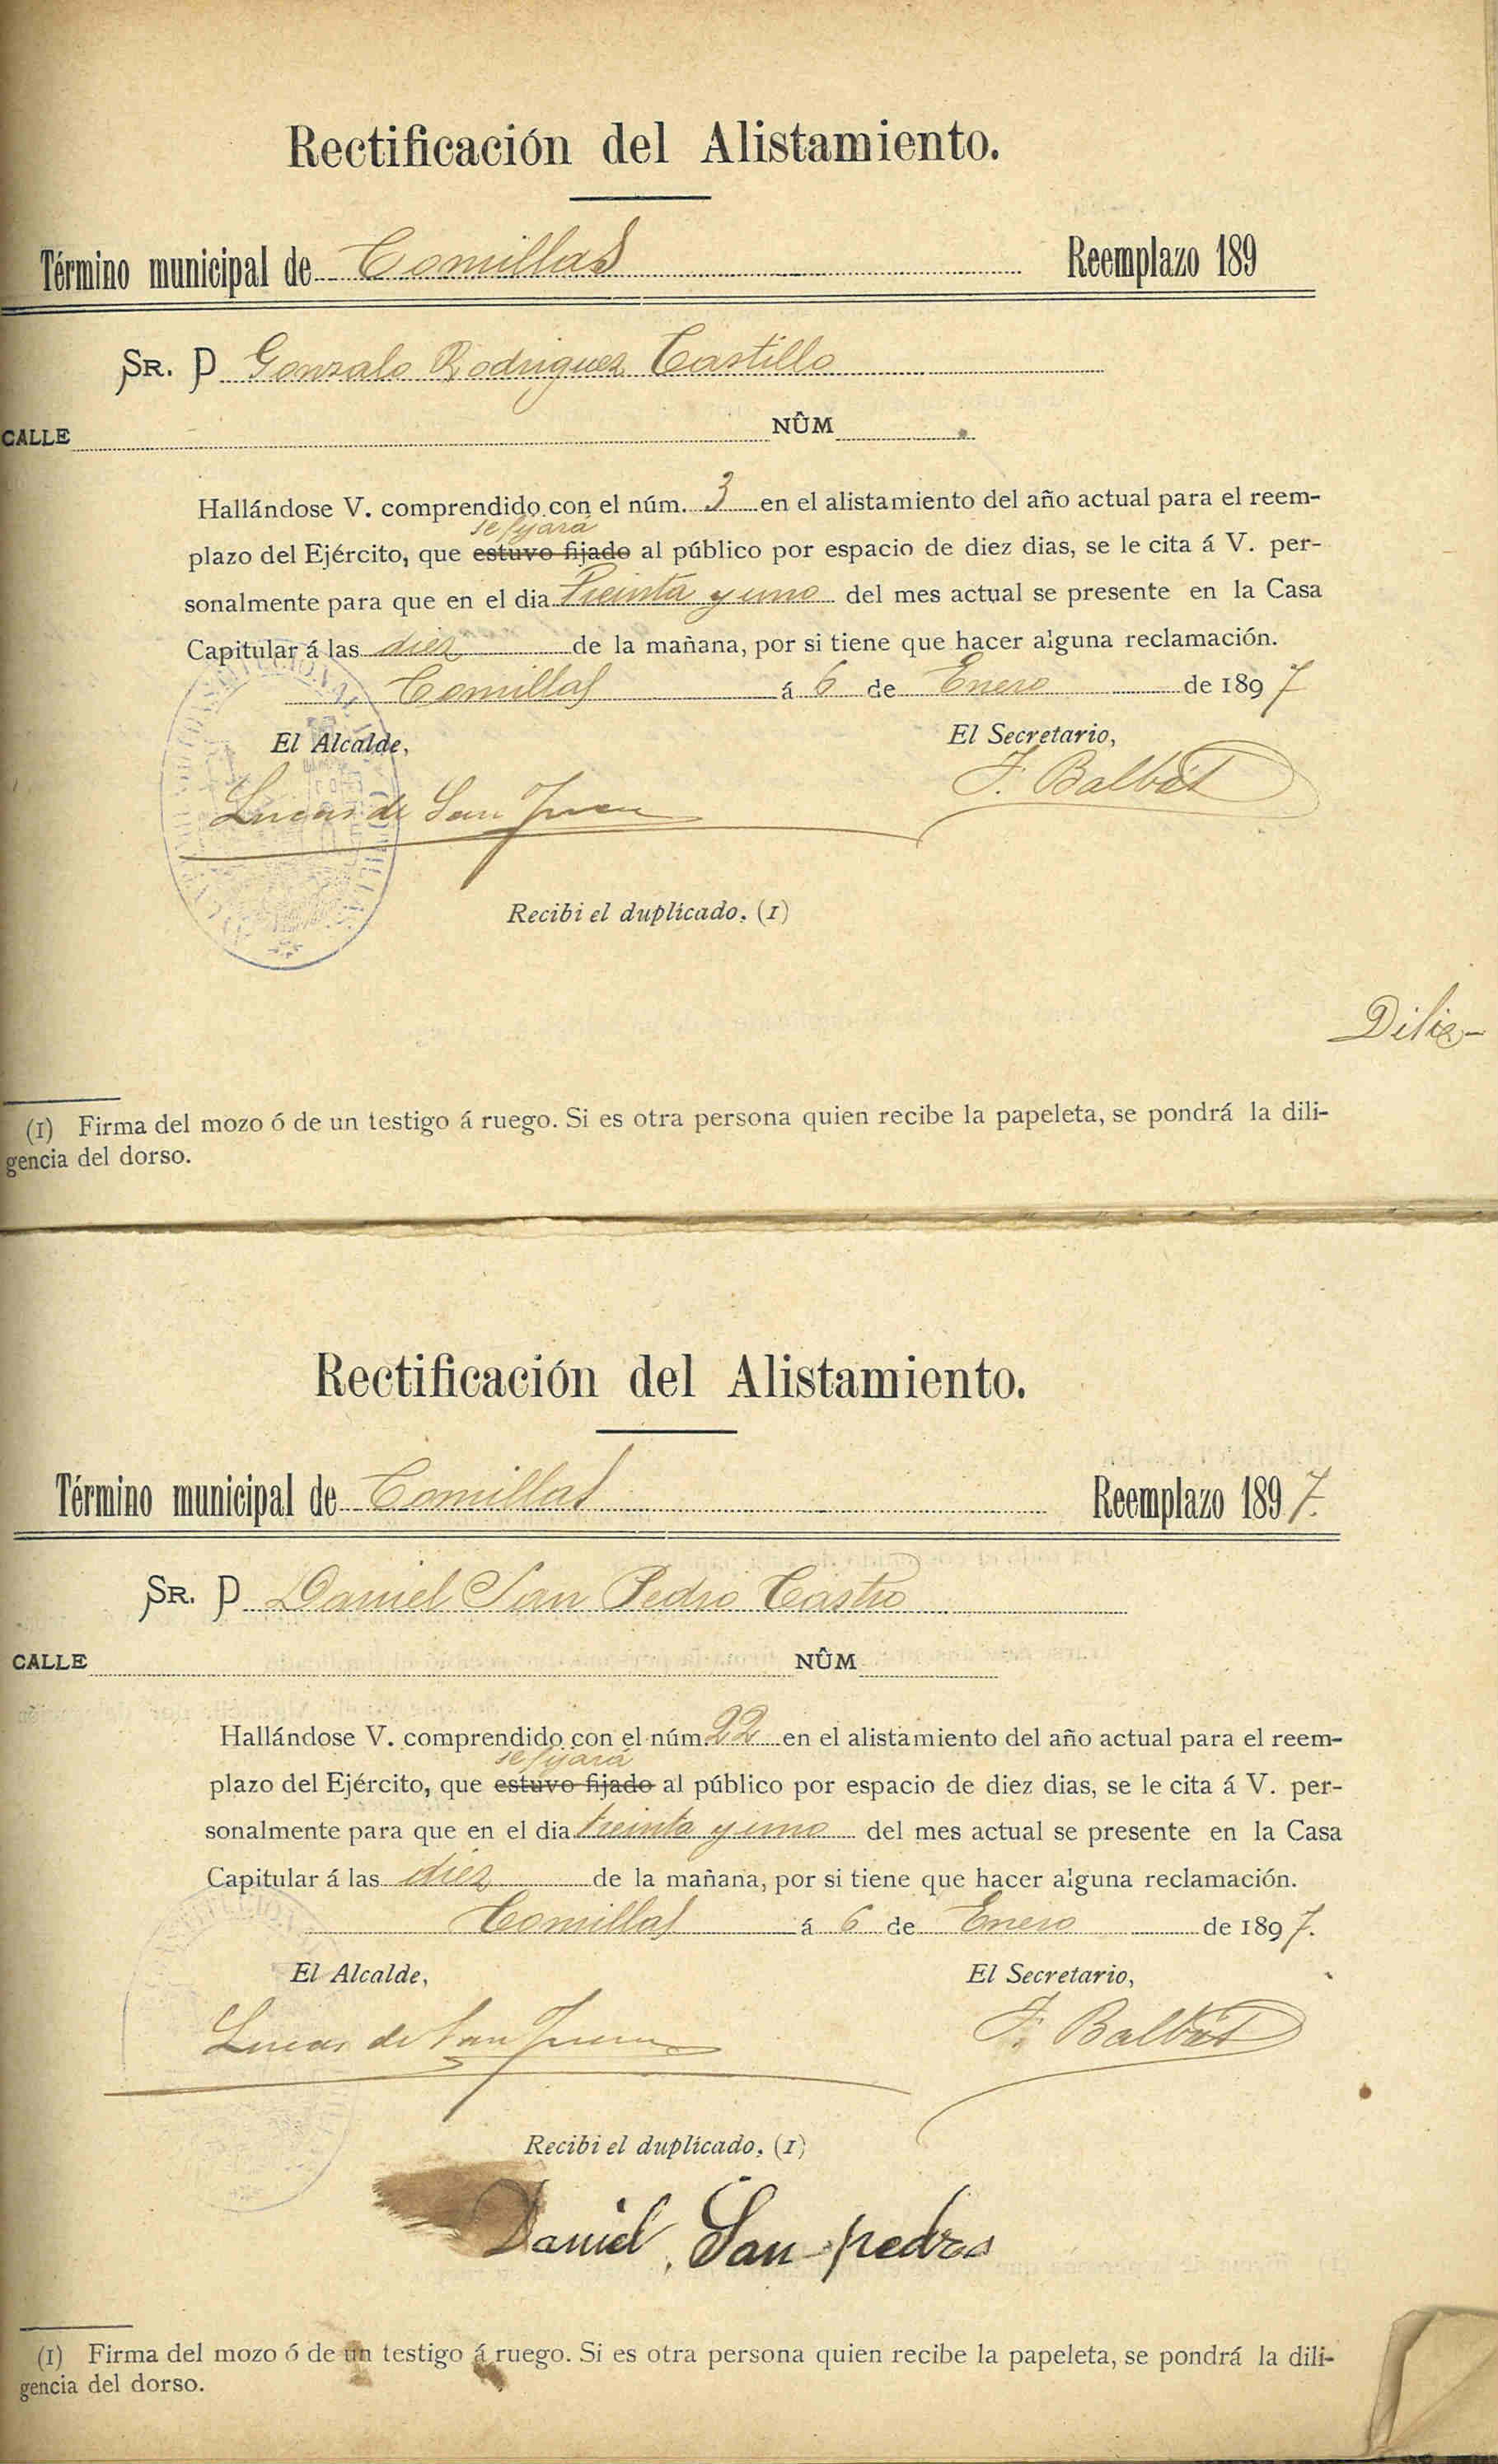 Rectificación del Alistamiento.
Término municipal de Comillas Reemplazo 189
SR. D Gonzalo Rodriguez Castillo
CALLE NÚM
Hallándose V. comprendido con el núm. 3 en el alistamiento del año actual para el reem-
se fijará
plazo del Ejército, que estuvo fijado al público por espacio de diez dias, se le cita á V. per-
sonalmente para que en el dia Treinta y uno del mes actual se presente en la Casa
Capitular á las diez de la mañana, por si tiene que hacer alguna reclamación.
Comillas á 6 de Enero de 1897
El Alcalde, El Secretario,
Lucas de San Juan F. Balbás
Recibi el duplicado. (1)
Dilig-
(1) Firma del mozo ó de un testigo á ruego. Si es otra persona quien recibe la papeleta, se pondrá la dili-
gencia del dorso.
Rectificación del Alistamiento.
Término municipal de Comillas Reemplazo 1897.
SR. D Daniel San Pedro Castro
CALLE NÚM
Hallándose V. comprendido con el núm. 22 en el alistamiento del año actual para el reem-
se fijará
plazo del Ejército, que estuvo fijado al público por espacio de diez dias, se le cita á V. per-
sonalmente para que en el dia treinta y uno del mes actual se presente en la Casa
Capitular á las diez de la mañana, por si tiene que hacer alguna reclamación.
Comillas á 6 de Enero de 1897.
El Alcalde, El Secretario,
Lucas de San Juan F. Balbás
Recibi el duplicado. (1)
Daniel San pedro
(1) Firma del mozo ó de un testigo á ruego. Si es otra persona quien recibe la papeleta, se pondrá la dili-
gencia del dorso.